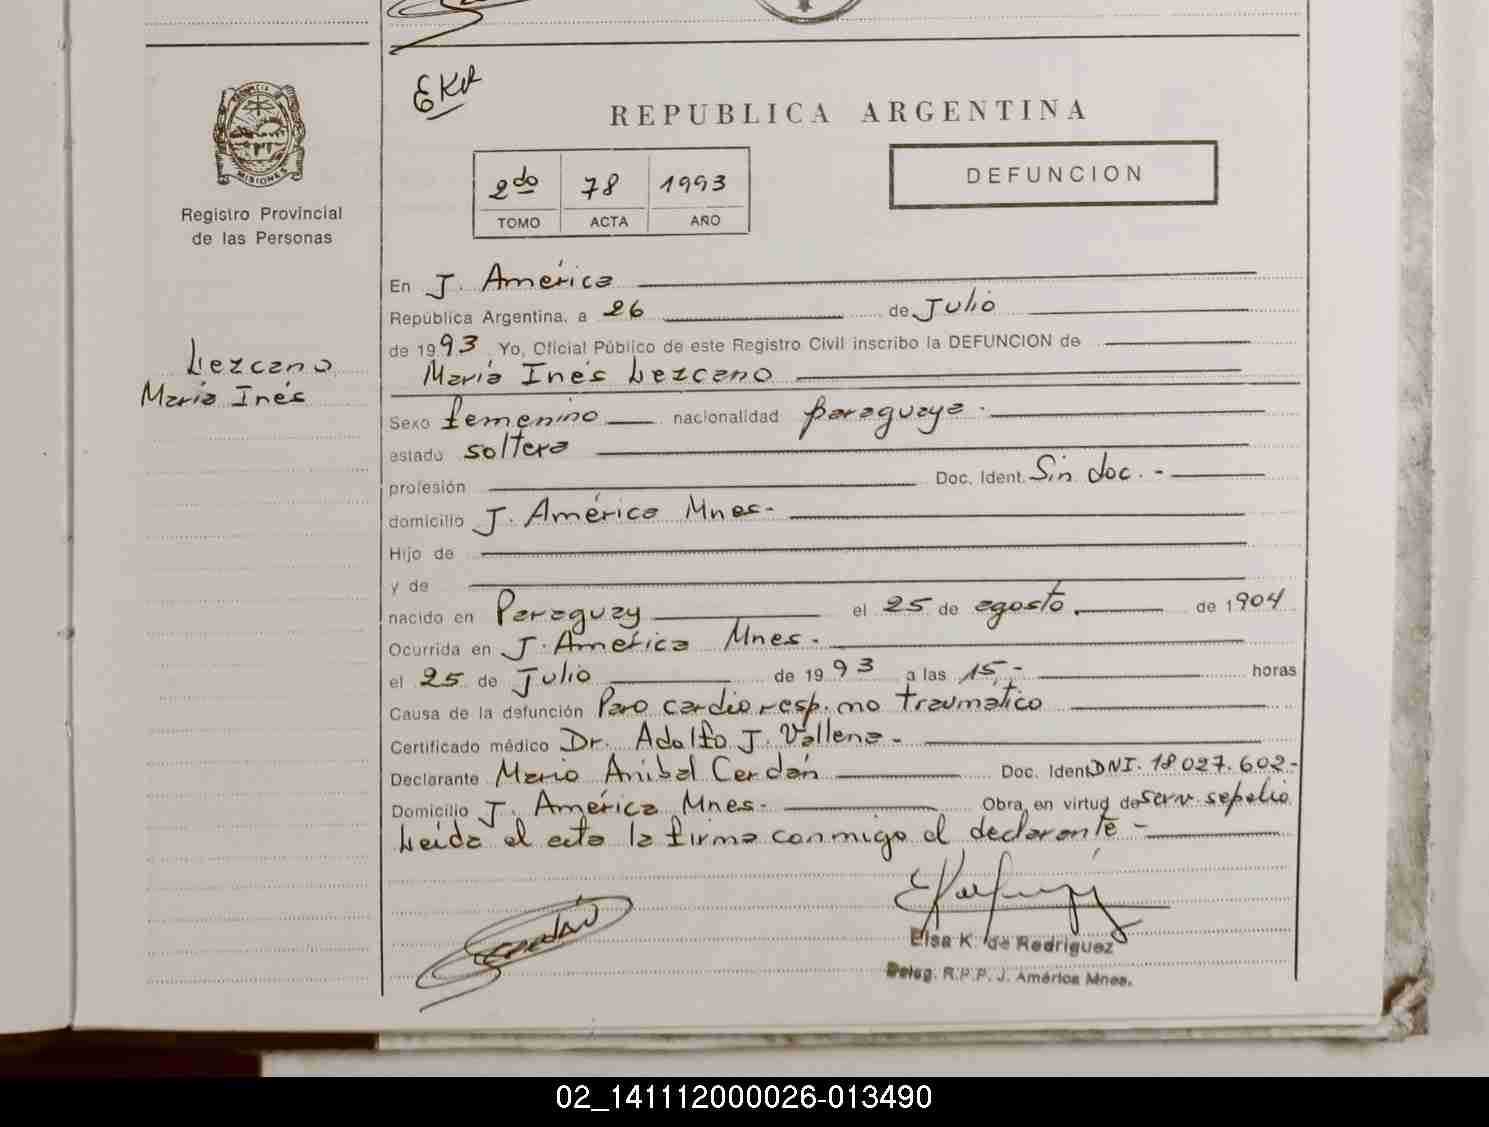 EKR
REPUBLICA ARGENTINA
PROVINCIA
MISIONES
2do 78 1993
TOMO ACTA AÑO
DEFUNCION
Registro Provincial
de las Personas
Lezcano
María Inés
En J. América
República Argentina, a 26 de Julio
de 1993 Yo, Oficial Público de este Registro Civil inscribo la DEFUNCION de
María Inés Lezcano
Sexo femenino nacionalidad paraguaya.
estado soltera
profesión Doc. Ident. Sin doc. -
domicilio J. América Mnes-
Hijo de
y de
nacido en Paraguay el 25 de agosto de 1904
Ocurrida en J. América Mnes.
el 25 de Julio de 1993 a las 15,- horas
Causa de la defunción Paro cardio resp. no traumático
Certificado médico Dr. Adolfo J. Vallena-
Declarante Mario Anibal Cerdán Doc. Ident DNI. 18 027.602-
Domicilio J. América Mnes- Obra en virtud de serv. sepelio
Leída el acta la firma conmigo el declarante -
Elsa K. de Rodriguez
Deleg. R.P.P. J. América Mnes.
02_141112000026-013490